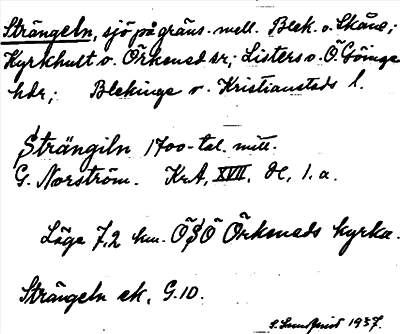 Strängeln, sjö på gräns. mell. Blek. o. Skåne;
Kyrkhult o. Örkened sr; Listers o. Ö. Göinge
hdr; Blekinge o. Kristianstads l.
Strängiln 1700-tal. mitt.
G. Norström. KrA, XVII, dl, 1. a.
Läge 7,2 km. ÖSÖ Örkeneds kyrka.
Strängeln ek. G.10.
S. Lundqvist 1937.